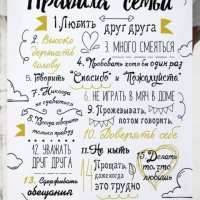 Правила семьи
1. Любить друг друга
2. Высоко держать голову
3. много смеяться
4. Пробовать хотя бы один раз
5. Говорить "Спасибо" и "Пожалуйста"
6. не играть в мяч в доме
7. Никогда не сдаваться
8. Всегда говорить только правду
9. Прожевывать, потом говорить.
10. Доверять себе
11. Не ныть
12. уважать друг друга
13. Сдерживать обещания
14. Прощать, даже когда это трудно
15. Делать то, что любишь